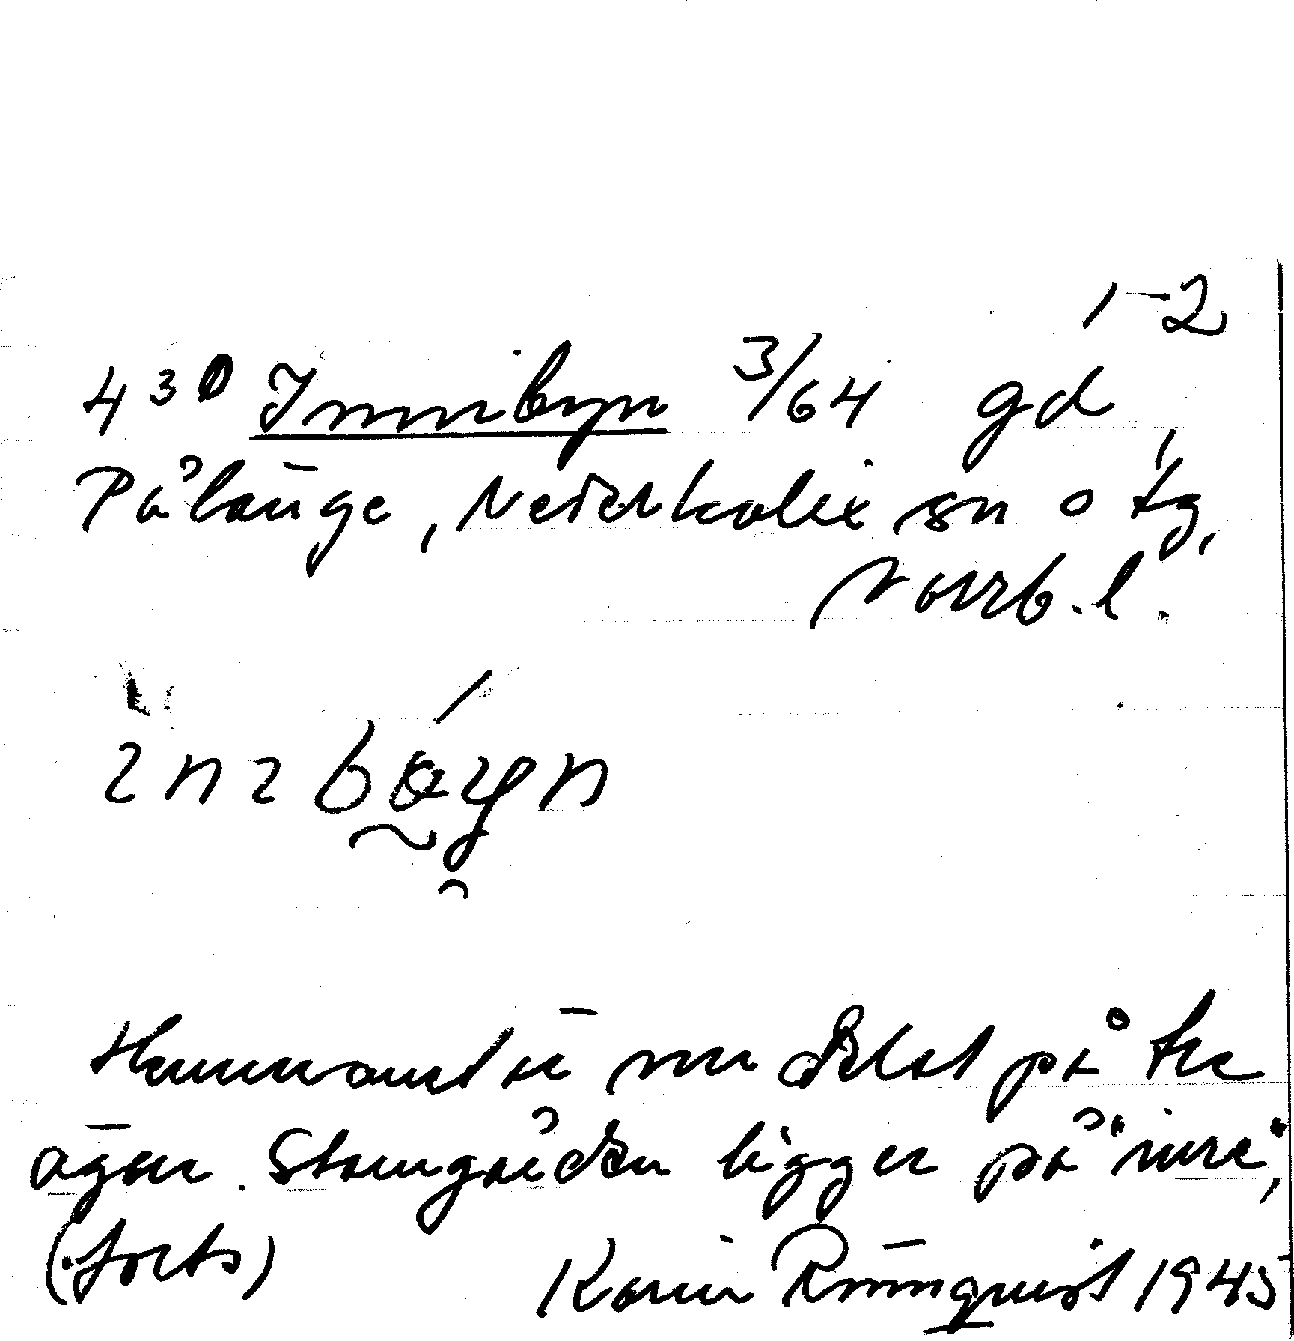 1-2
4 30 Innibyn 3/64 gd,
Pålänge, Nederkalix sn o tg,
Norrb. l.
Hemmanet är nu delat på tre
ägor. Stamgården ligger på "inre",
(forts) Karin Rönnquist 1945